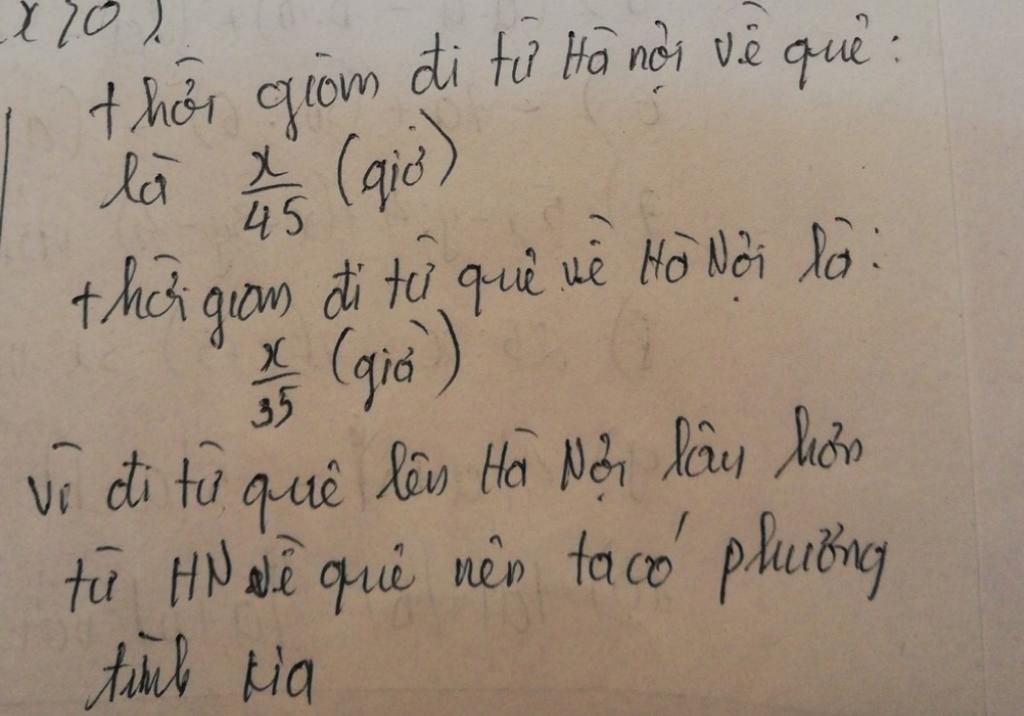 x>0).
+ thời gian đi từ Hà nội về quê:
là x/45 (giờ)
+ thời gian đi từ quê về Hà Nội là:
x/35 (giờ)
vì đi từ quê lên Hà Nội lâu hơn
từ HN về quê nên ta có phương
tình kia